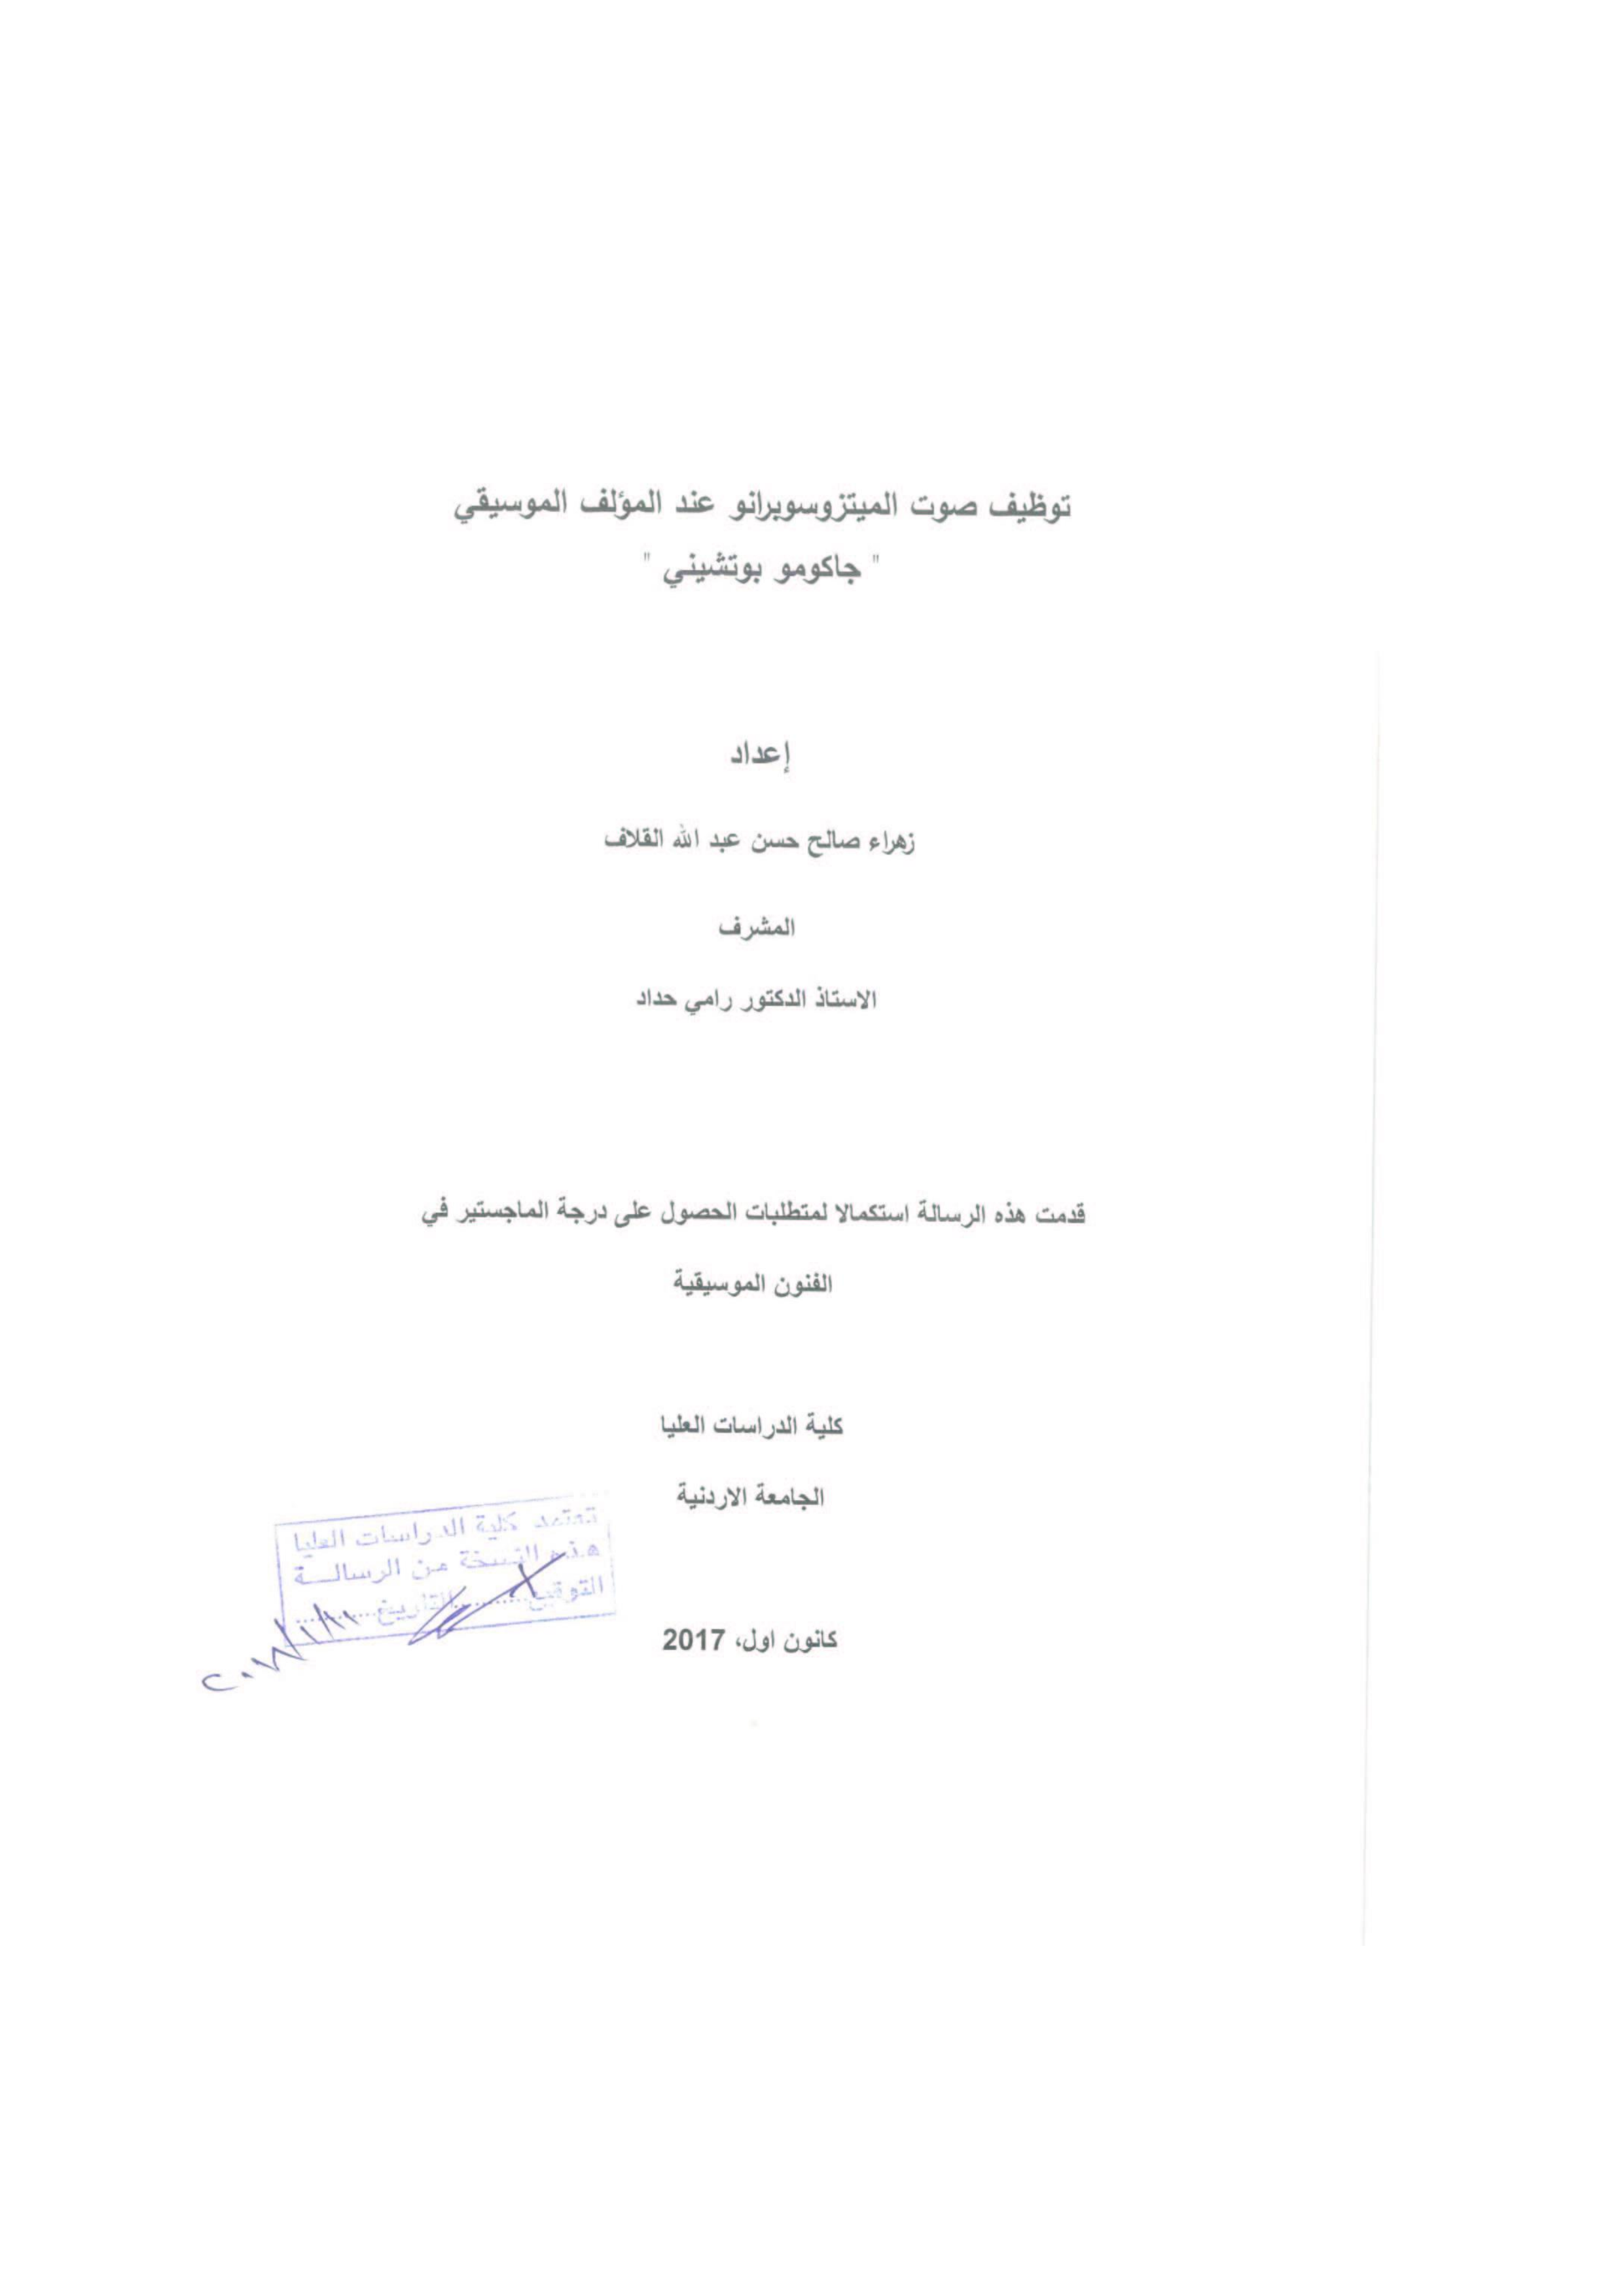 توظيف صوت الميتزوسوبرانو عند المؤلف الموسيقي
" جاكومو بوتشيني "
إعداد
زهراء صالح حسن عبد الله القلاف
المشرف
الاستاذ الدكتور رامي حداد
قدمت هذه الرسالة استكمالا لمتطلبات الحصول على درجة الماجستير في
الفنون الموسيقية
كلية الدراسات العليا
الجامعة الاردنية
تعتمد كلية الدراسات العليا
هذه النسخة من الرسالـــة
التوقيع............التاريخ............
كانون اول، 2017